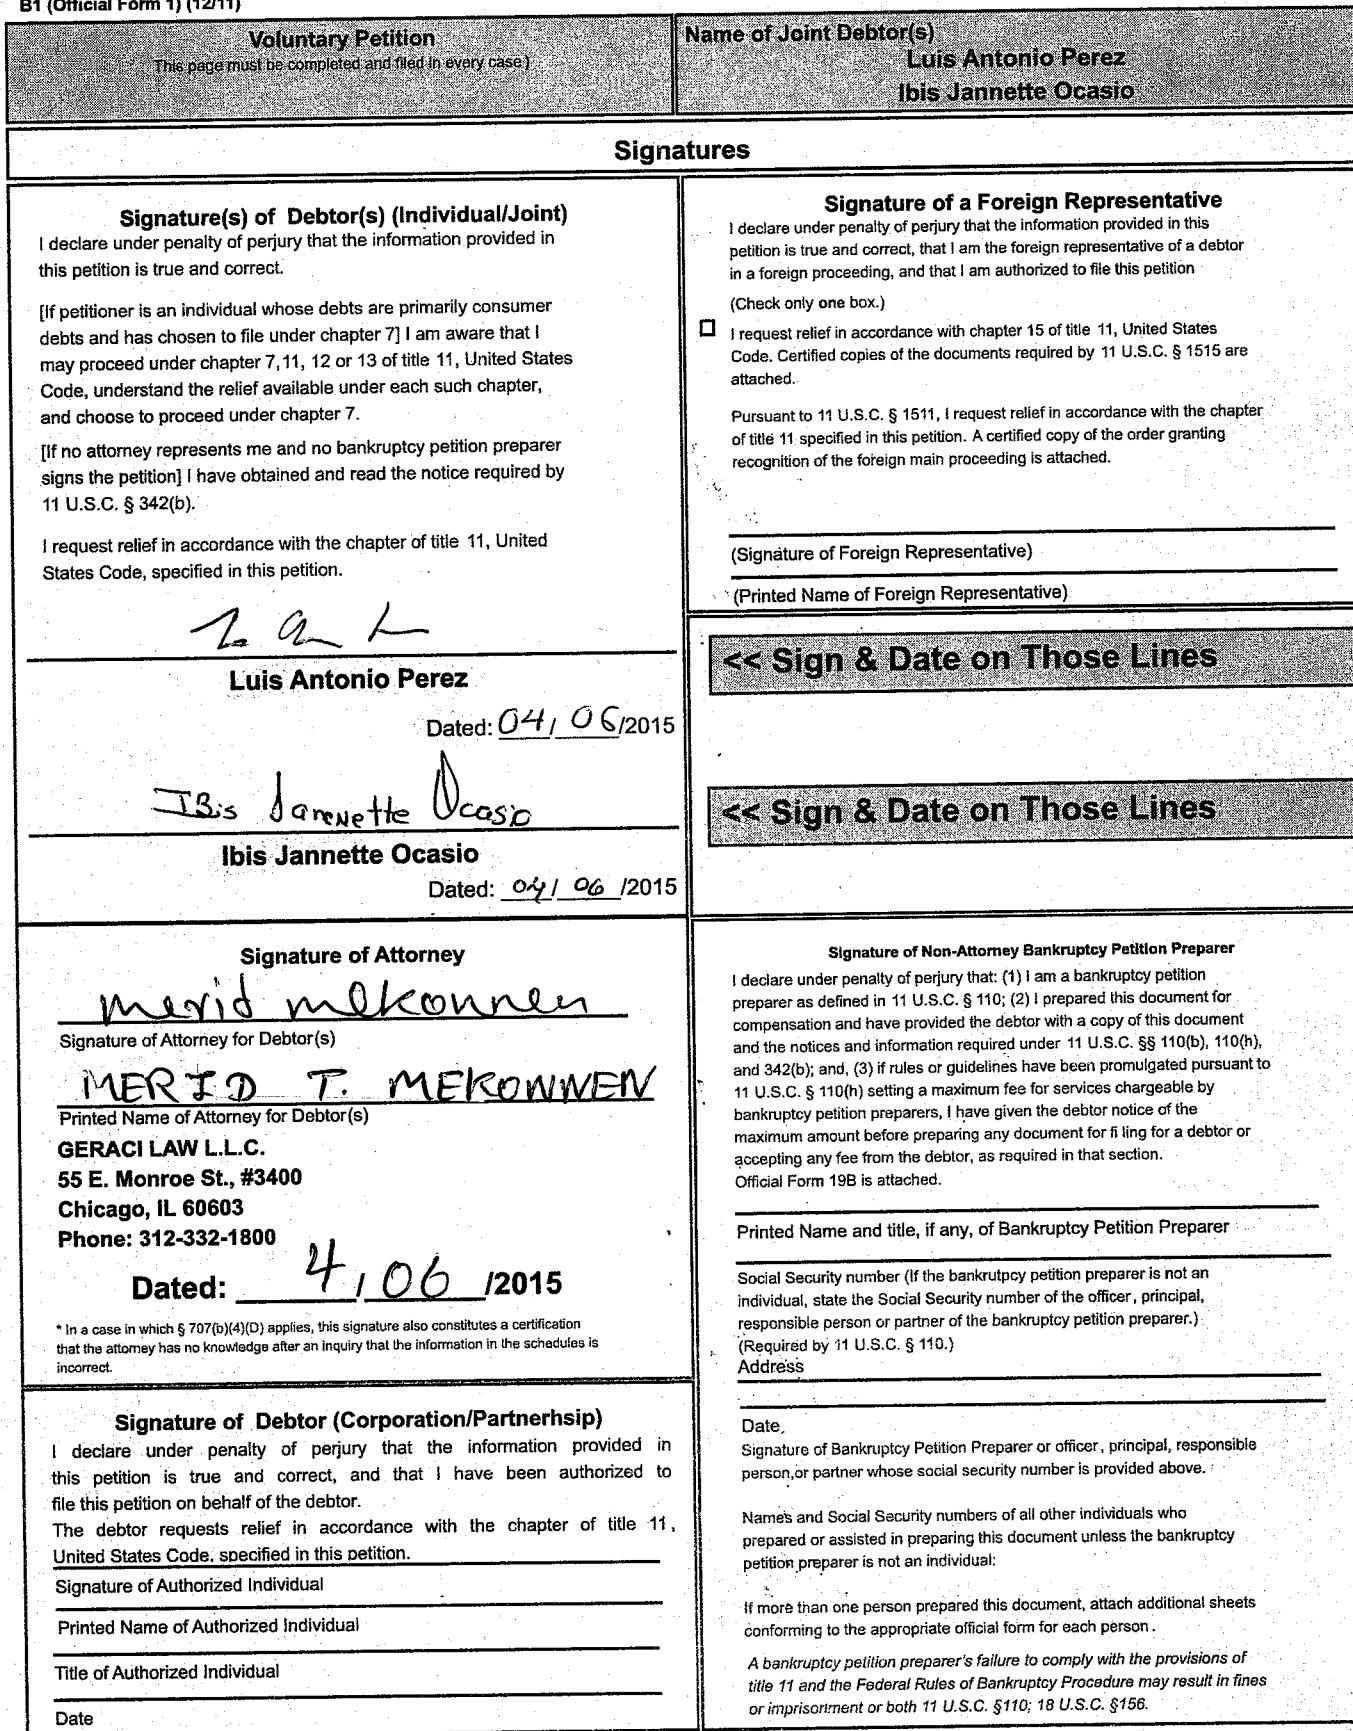 B1 (Official Form 1) (12/11)
Voluntary Petition
This page must be completed and filed in every case)
Name of Joint Debtor(s)
Luis Antonio Perez
Ibis Jannette Ocasio
Signatures
Signature(s) of Debtor(s) (Individual/Joint)
I declare under penalty of perjury that the information provided in
this petition is true and correct.
[If petitioner is an individual whose debts are primarily consumer
debts and has chosen to file under chapter 7] I am aware that I
may proceed under chapter 7,11, 12 or 13 of title 11, United States
Code, understand the relief available under each such chapter,
and choose to proceed under chapter 7.
[If no attorney represents me and no bankruptcy petition preparer
signs the petition] I have obtained and read the notice required by
11 U.S.C. § 342(b).
I request relief in accordance with the chapter of title 11, United
States Code, specified in this petition.
Luis Antonio Perez
Dated: 04/ 06/2015
IBis Jannette Ocasio
Ibis Jannette Ocasio
Dated: 04/ 06 /2015
Signature of Attorney
merid mekonnen
Signature of Attorney for Debtor(s)
MERID T. MEKONNEN
Printed Name of Attorney for Debtor(s)
GERACI LAW L.L.C.
55 E. Monroe St., #3400
Chicago, IL 60603
Phone: 312-332-1800
Dated: 4/06 /2015
* In a case in which § 707(b)(4)(D) applies, this signature also constitutes a certification
that the attorney has no knowledge after an inquiry that the information in the schedules is
incorrect.
Signature of Debtor (Corporation/Partnerhsip)
I declare under penalty of perjury that the information provided in
this petition is true and correct, and that I have been authorized to
file this petition on behalf of the debtor.
The debtor requests relief in accordance with the chapter of title 11,
United States Code, specified in this petition.
Signature of Authorized Individual
Printed Name of Authorized Individual
Title of Authorized Individual
Date
Signature of a Foreign Representative
I declare under penalty of perjury that the information provided in this
petition is true and correct, that I am the foreign representative of a debtor
in a foreign proceeding, and that I am authorized to file this petition
(Check only one box.)
I request relief in accordance with chapter 15 of title 11, United States
Code. Certified copies of the documents required by 11 U.S.C. § 1515 are
attached.
Pursuant to 11 U.S.C. § 1511, I request relief in accordance with the chapter
of title 11 specified in this petition. A certified copy of the order granting
recognition of the foreign main proceeding is attached.
(Signature of Foreign Representative)
(Printed Name of Foreign Representative)
<< Sign & Date on Those Lines
<< Sign & Date on Those Lines
Signature of Non-Attorney Bankruptcy Petition Preparer
I declare under penalty of perjury that: (1) I am a bankruptcy petition
preparer as defined in 11 U.S.C. § 110; (2) I prepared this document for
compensation and have provided the debtor with a copy of this document
and the notices and information required under 11 U.S.C. §§ 110(b), 110(h),
and 342(b); and, (3) if rules or guidelines have been promulgated pursuant to
11 U.S.C. § 110(h) setting a maximum fee for services chargeable by
bankruptcy petition preparers, I have given the debtor notice of the
maximum amount before preparing any document for fi ling for a debtor or
accepting any fee from the debtor, as required in that section.
Official Form 19B is attached.
Printed Name and title, if any, of Bankruptcy Petition Preparer
Social Security number (If the bankrutpcy petition preparer is not an
individual, state the Social Security number of the officer, principal,
responsible person or partner of the bankruptcy petition preparer.)
(Required by 11 U.S.C. § 110.)
Address
Date
Signature of Bankruptcy Petition Preparer or officer, principal, responsible
person,or partner whose social security number is provided above.
Name's and Social Security numbers of all other individuals who
prepared or assisted in preparing this document unless the bankruptcy
petition preparer is not an individual:
If more than one person prepared this document, attach additional sheets
conforming to the appropriate official form for each person.
A bankruptcy petition preparer's failure to comply with the provisions of
title 11 and the Federal Rules of Bankruptcy Procedure may result in fines
or imprisonment or both 11 U.S.C. §110; 18 U.S.C. §156.